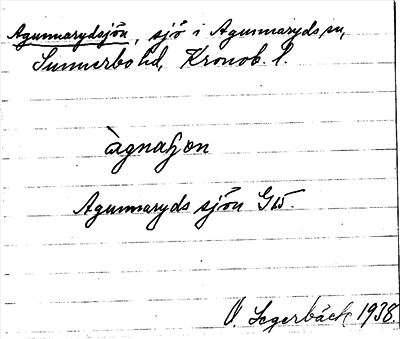 Agunnarydsjön, sjö i Agunnaryds sn,
Sunnerbo hd, Kronob. l.
àgnaɧøn
Agunnaryds sjön G15.
O. Segerbäck 1938.